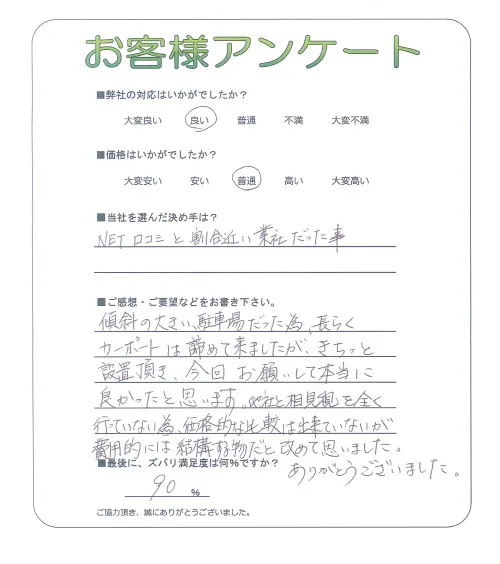 お客様アンケート
■弊社の対応はいかがでしたか?
大変良い 良い 普通 不満 大変不満
■価格はいかがでしたか?
大変安い 安い 普通 高い 大変高い
■当社を選んだ決め手は?
NET 口コミ と 割合近い 業社だった事
■ご感想・ご要望などをお書き下さい。
傾斜の大きい、駐車場だった為、長らく
カーポートは諦めて来ましたが、きちっと
設置頂き、今回 お願いして本当に
良かったと思います。他社と相見積を全く
行っていない為、価格的な比較は出来ていないが
費用的には結構な物だと改めて思いました。
■最後に、ズバリ満足度は何%ですか?
ありがとうございました。
90 %
ご協力頂き、誠にありがとうございました。